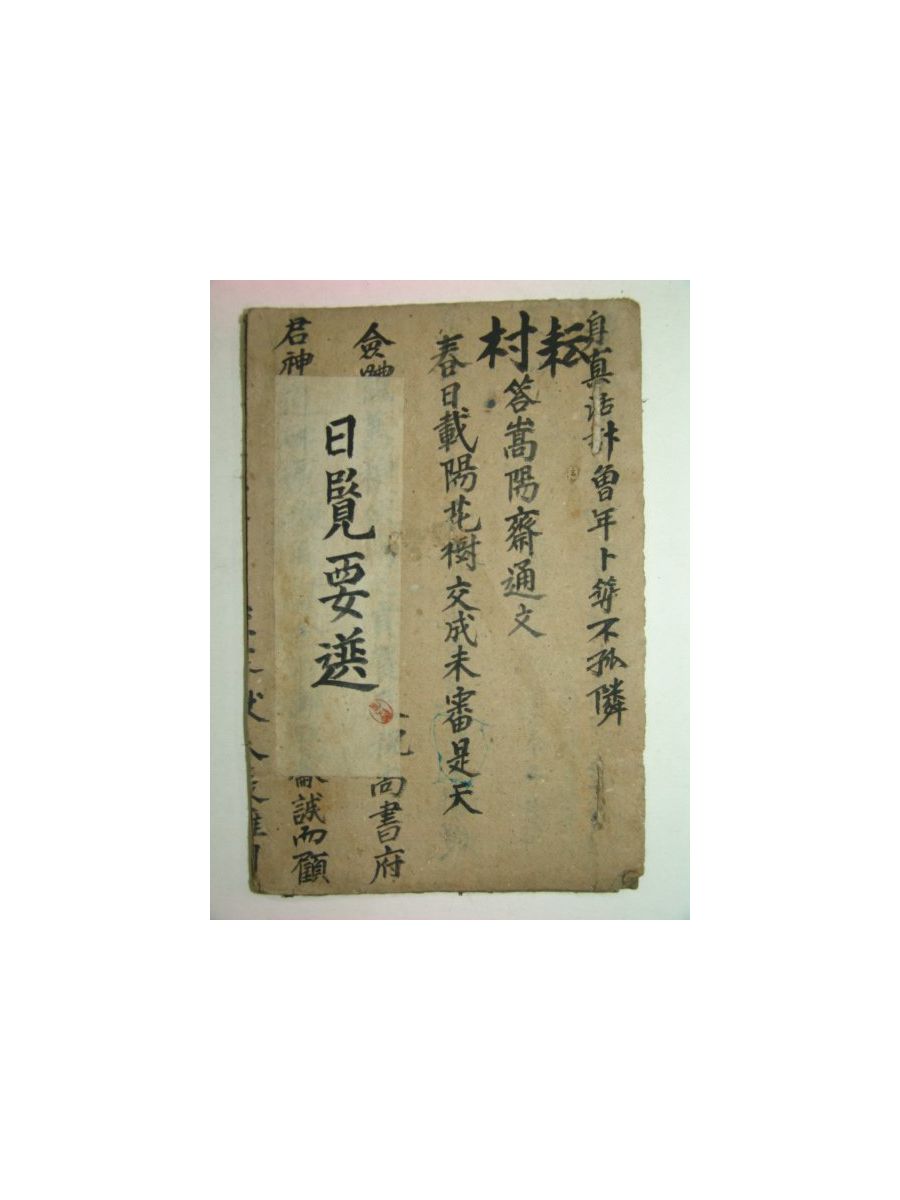 身真活計曾年卜築不孤隣
耘村
答嵩陽齋通文
春日載陽花樹交成未審是天
僉軆
尚書府
君神
誠而顧
日覧要選